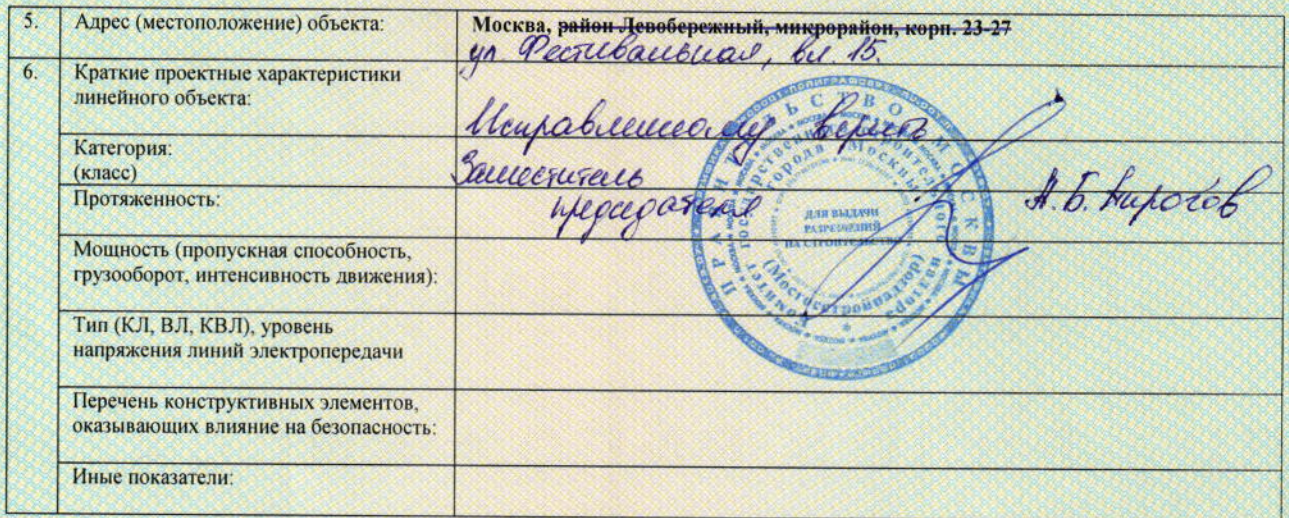 5. Адрес (местоположение) объекта: Москва, район Левобережный, микрорайон, корп. 23-27
ул. Фестивальная, вл. 15.
6. Краткие проектные характеристики
линейного объекта:
Исправленному верить
Категория:
(класс)
Заместитель
председателя
А.Б. Пирогов
Протяженность:
Мощность (пропускная способность,
грузооборот, интенсивность движения):
Тип (КЛ, ВЛ, КВЛ), уровень
напряжения линий электропередачи
Перечень конструктивных элементов,
оказывающих влияние на безопасность:
Иные показатели:
ПРАВИТЕЛЬСТВО МОСКВЫ
Комитет государственного строительного надзора
города Москвы
(Мосгосстройнадзор)
ДЛЯ ВЫДАЧИ
РАЗРЕШЕНИЙ
НА СТРОИТЕЛЬСТВО